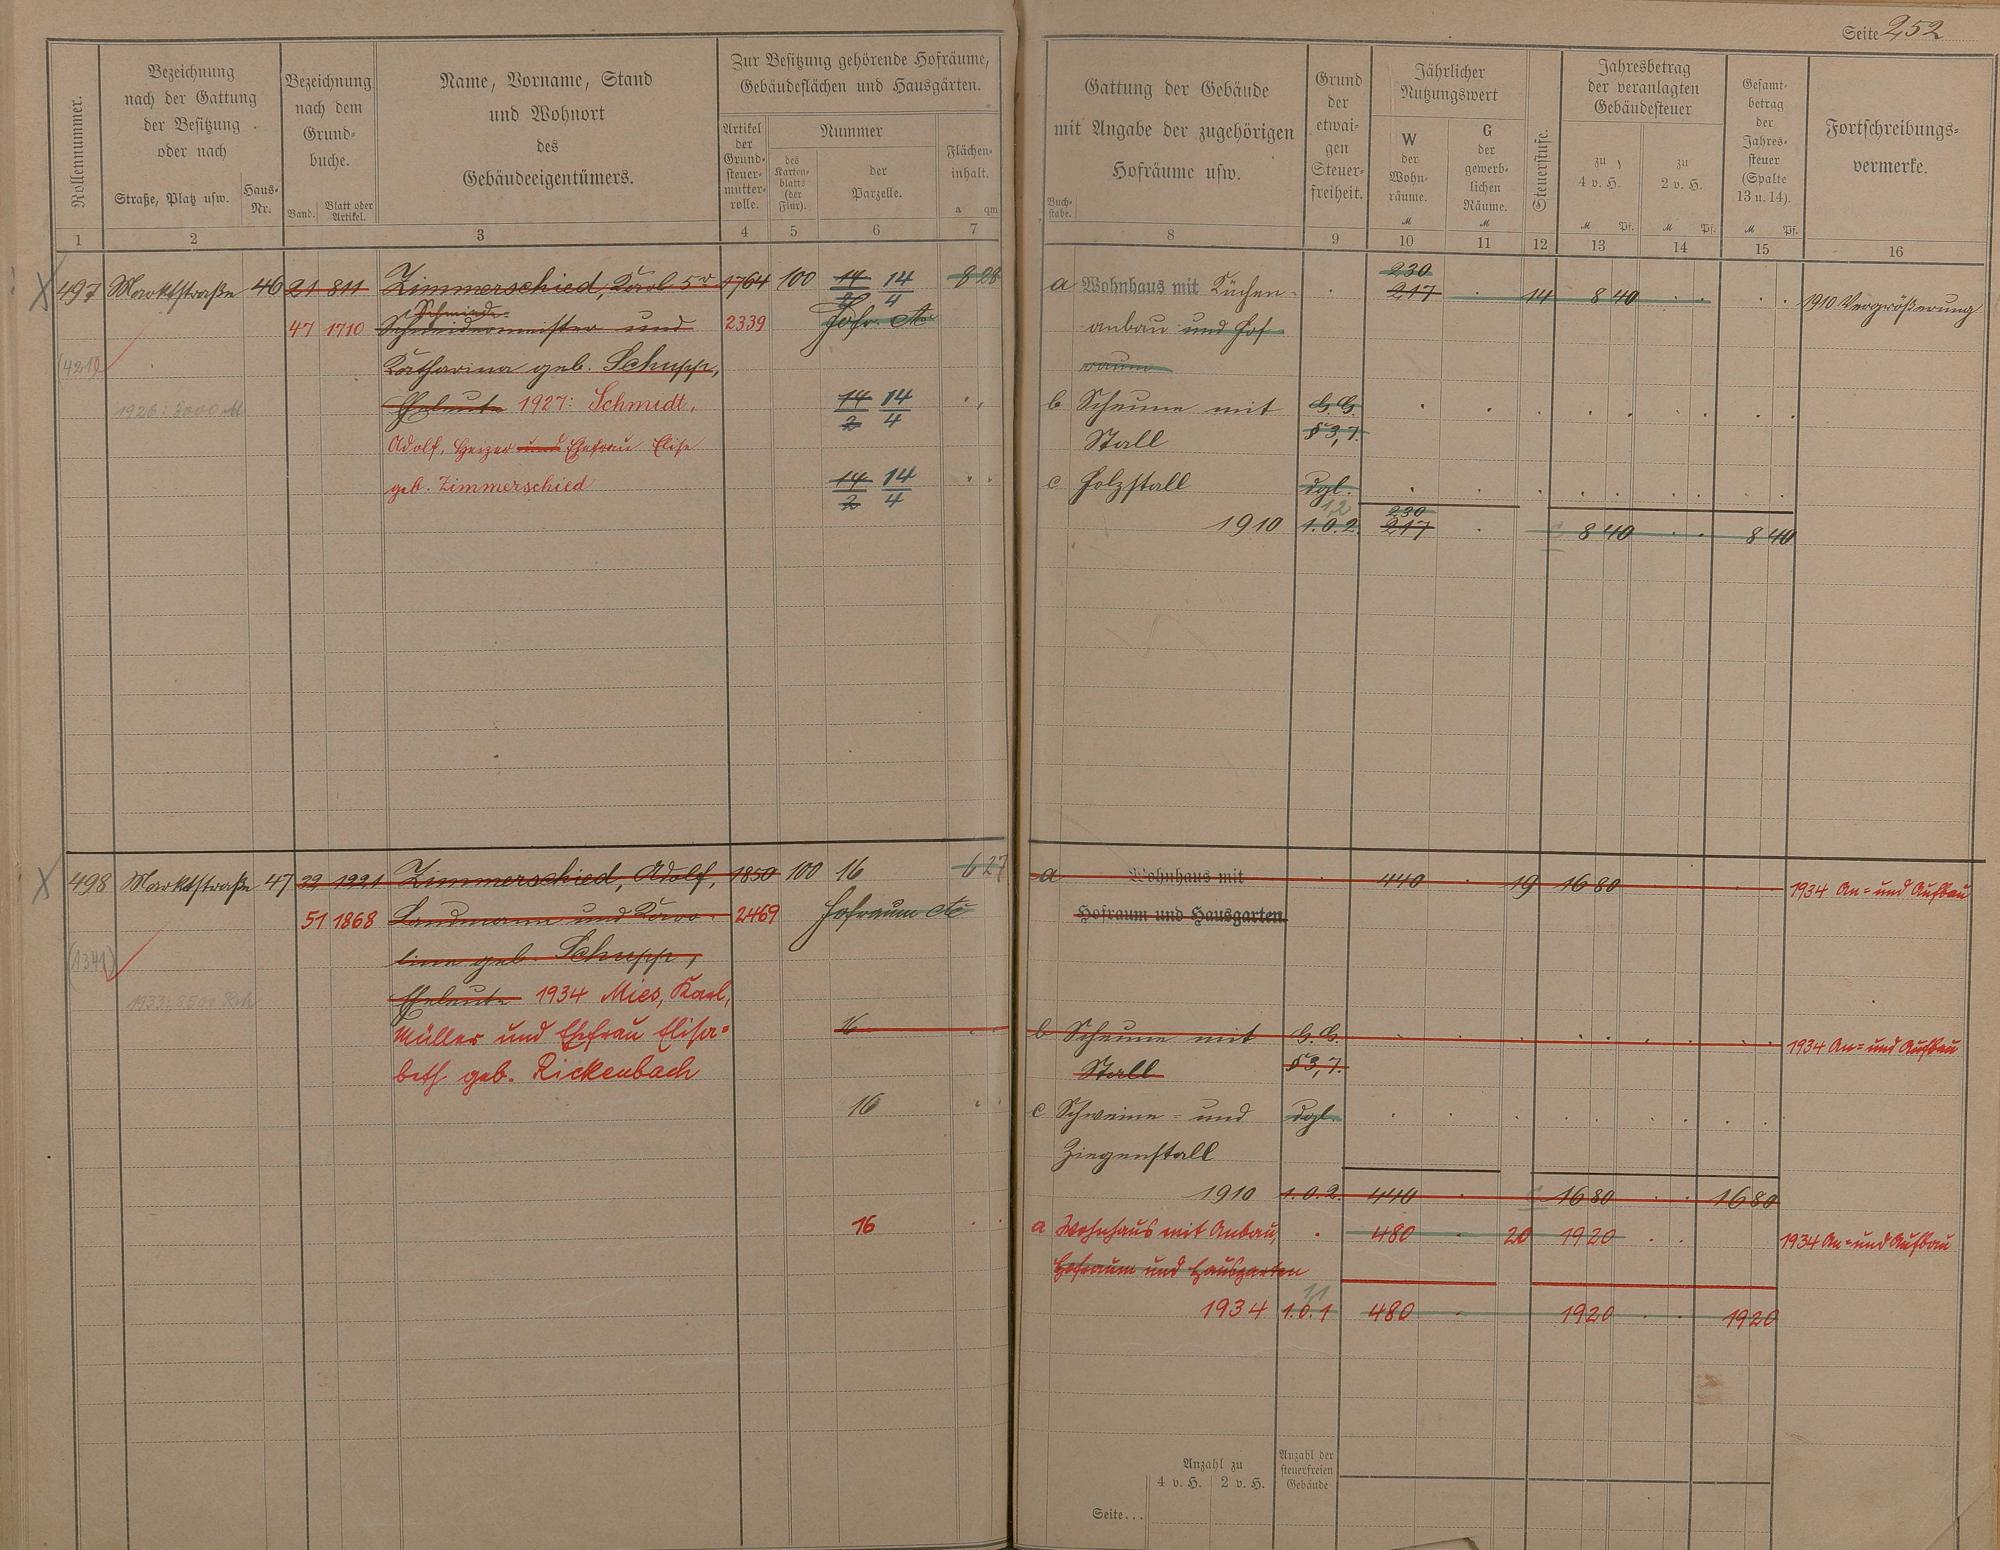 Seite 252
Rollennummer.
Bezeichnung
nach der Gattung
der Besitzung
oder nach
Straße, Platz usw.
Haus-
Nr.
Bezeichnung
nach dem
Grund-
buche.
Band.
Blatt oder
Artikel.
Name, Vorname, Stand
und Wohnort
des
Gebäudeeigentümers.
Zur Besitzung gehörende Hofräume,
Gebäudeflächen und Hausgärten.
Artikel
der
Grund-
steuer-
mutter-
rolle.
Nummer
des
Karten-
blatts
(der
Flur).
der
Parzelle.
Flächen-
inhalt.
a qm
1 2 3 4 5 6 7
Buch-
stabe.
Gattung der Gebäude
mit Angabe der zugehörigen
Hofräume usw.
Grund
der
etwai-
gen
Steuer-
freiheit.
Jährlicher
Nutzungswert
W
der
Wohn-
räume.
M
G
der
gewerb-
lichen
Räume.
M
Steuerstufe.
Jahresbetrag
der veranlagten
Gebäudesteuer
zu
4 v. H.
M Pf.
zu
2 v. H.
M Pf.
Gesamt-
betrag
der
Jahres-
steuer
(Spalte
13 u. 14).
M Pf.
Fortschreibungs-
vermerke.
8 9 10 11 12 13 14 15 16
497 Marktstraße 46 21 811 Zimmerschied, Karl 5r 1764 100 14/2 14/4 8 28
Schmiede-
47 1710 Schneidermeister und 2339 Hofr. etc
(421) Katharina geb. Schupp,
1926: 3000 M Eheleute 1927: Schmidt, 14/2 14/4
Adolf, Heizer und Ehefrau Elise
geb. Zimmerschied 14/2 14/4
230
a Wohnhaus mit Küchen- 217 14 8 40 1910 Vergrößerung
anbau und Hof-
raum
b Scheune mit G.G.
Stall § 3,7.
c Holzstall dgl.
1,2 230
1910 1.0.2. 217 8 40 8 40
498 Marktstraße 47 22 1221 Zimmerschied, Adolf, 1850 100 16 6 27
51 1868 Landmann und Karo- 2469 Hofraum etc
(1341) line geb. Schupp,
1933: 8500 Eheleute 1934 Mies, Karl,
Müller und Ehefrau Elisa- 16
beth geb. Rickenbach
16
16
a Wohnhaus mit 440 19 16 80 1934 An- und Aufbau
Hofraum und Hausgarten.
b Scheune mit G.G. 1934 An- und Aufbau
Stall § 3,7.
c Schweine- und dgl.
Ziegenstall
1910 1.0.2. 440 16 80 16 80
a Wohnhaus mit Anbau, 480 20 19 20 1934 An- und Aufbau
Hofraum und Hausgarten
1,1
1934 1.0.1 480 19 20 19 20
Anzahl zu
4 v. H. 2 v. H.
Anzahl der
steuerfreien
Gebäude
Seite...